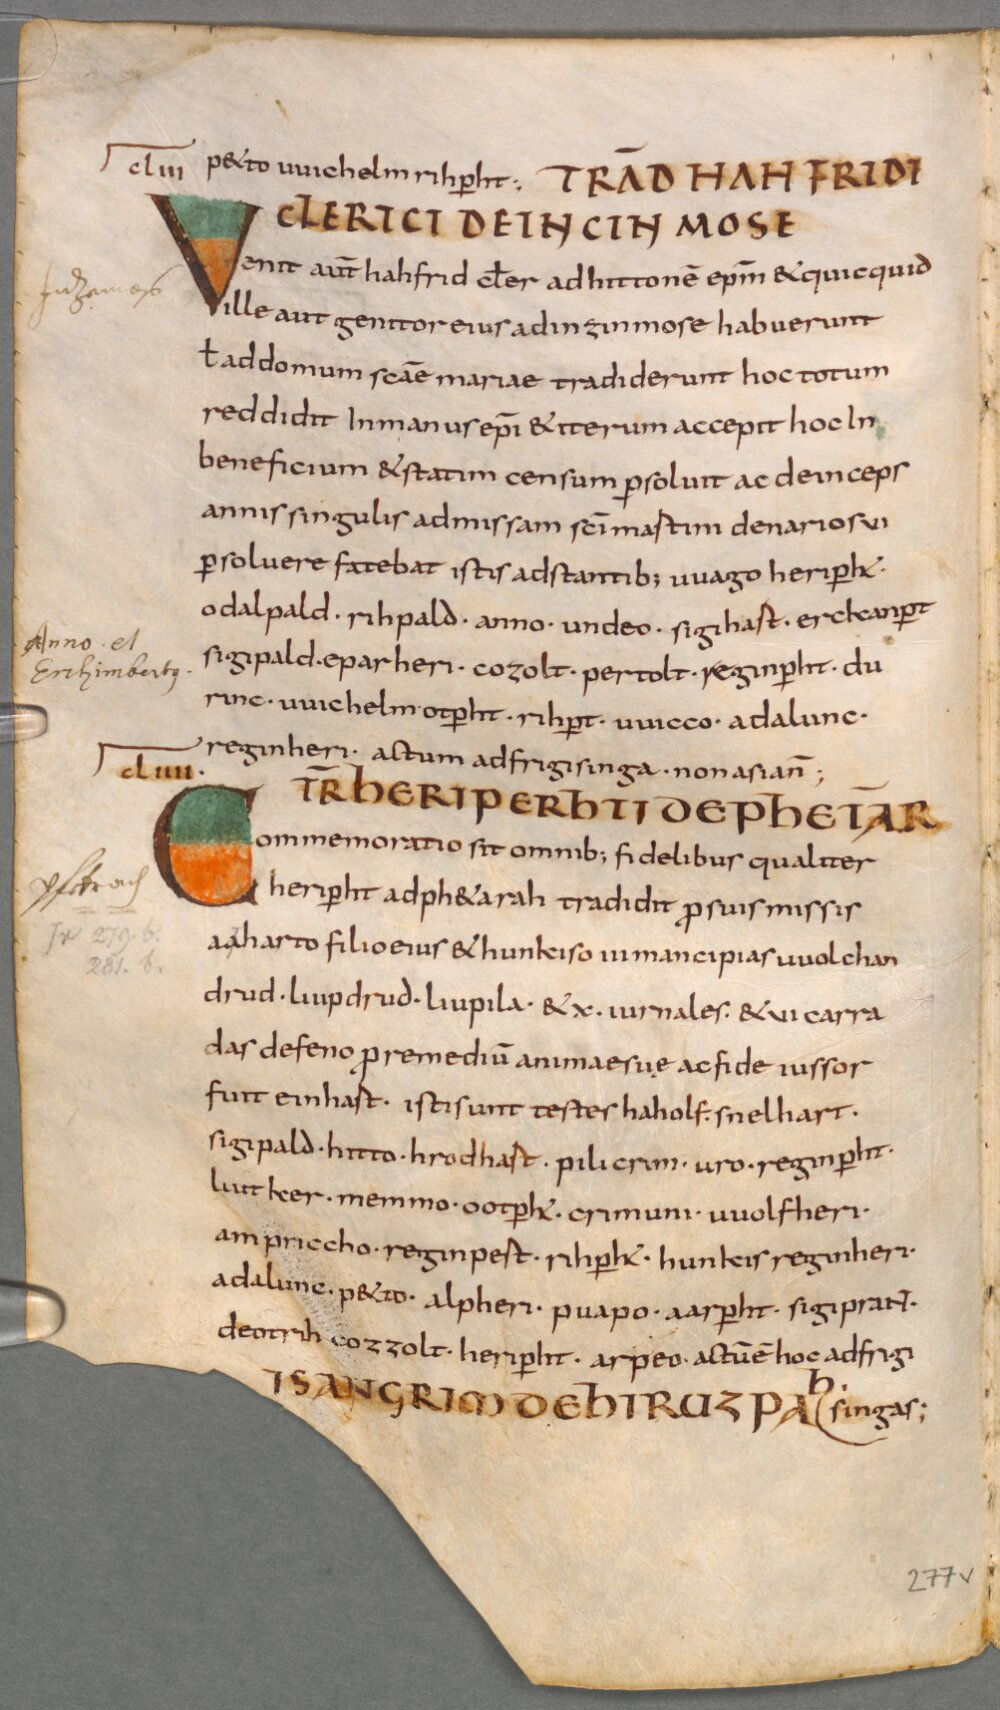 clui p&to uuichelm rihp̄ht:, TRĀD HAHFRIDI
CLERICI DE INCINMOSE
Uenit aut̄ hahfrid cler ad hittonē ep̄m &quicquid
ille aut genitor eius ad inzinmose habuerunt
ł ad domum sc̄ae mariae tradiderunt hoc totum
reddidit In manus ep̄i &iterum accepit hoc In
beneficium &statim censum p̱soluit ac deinceps
annis singulis ad missam sc̄i mastini denarios ui
p̱soluere fatebat istis adstantib; uuago herip̄h&·
odalpald · rihpald · anno · undeo · sigihast · erckanp̄t
sigipald · eparheri · cozolt · pertolt · reginp̄ht · du
rinc · uuichelm · otp̄ht · rihp̄t · uuicco · adalunc ·
reginheri · actum ad frigisinga · non asian̄ ;
cluii · TR̄ HERIPERHTI DE PHETĀR
Commemoratio sit omnib; fidelibus qualiter
herip̄ht ad ph&arah tradidit p̱ suis missis
aaharto filio eius &hunkiso iii mancipias uuolchan
drud · liupdrud · liupila · &x · iurnales · &ui carra
das de feno p̱ remediū animae suę ac fide iussor
fuit einhast · isti sunt testes haholf · snelhart ·
sigipald · hitto · hrodhast · pilicrim · uro · reginp̄ht ·
liutker · memmo · ootp̄h& · crimuni · uuolfheri ·
ampriccho · reginpest · rihp̄h& · hunkis reginheri ·
adalunc · p&to · alpheri · puapo · aarp̄ht · sigiprant ·
deotrih cozzolt · herip̄ht · arpeo · actū ē hoc ad frigi
ISANGRIM DE HIRUZPAH singas ;
Anno · et
Erchimbertg ·
Jr 279. b.
281. b.
277v